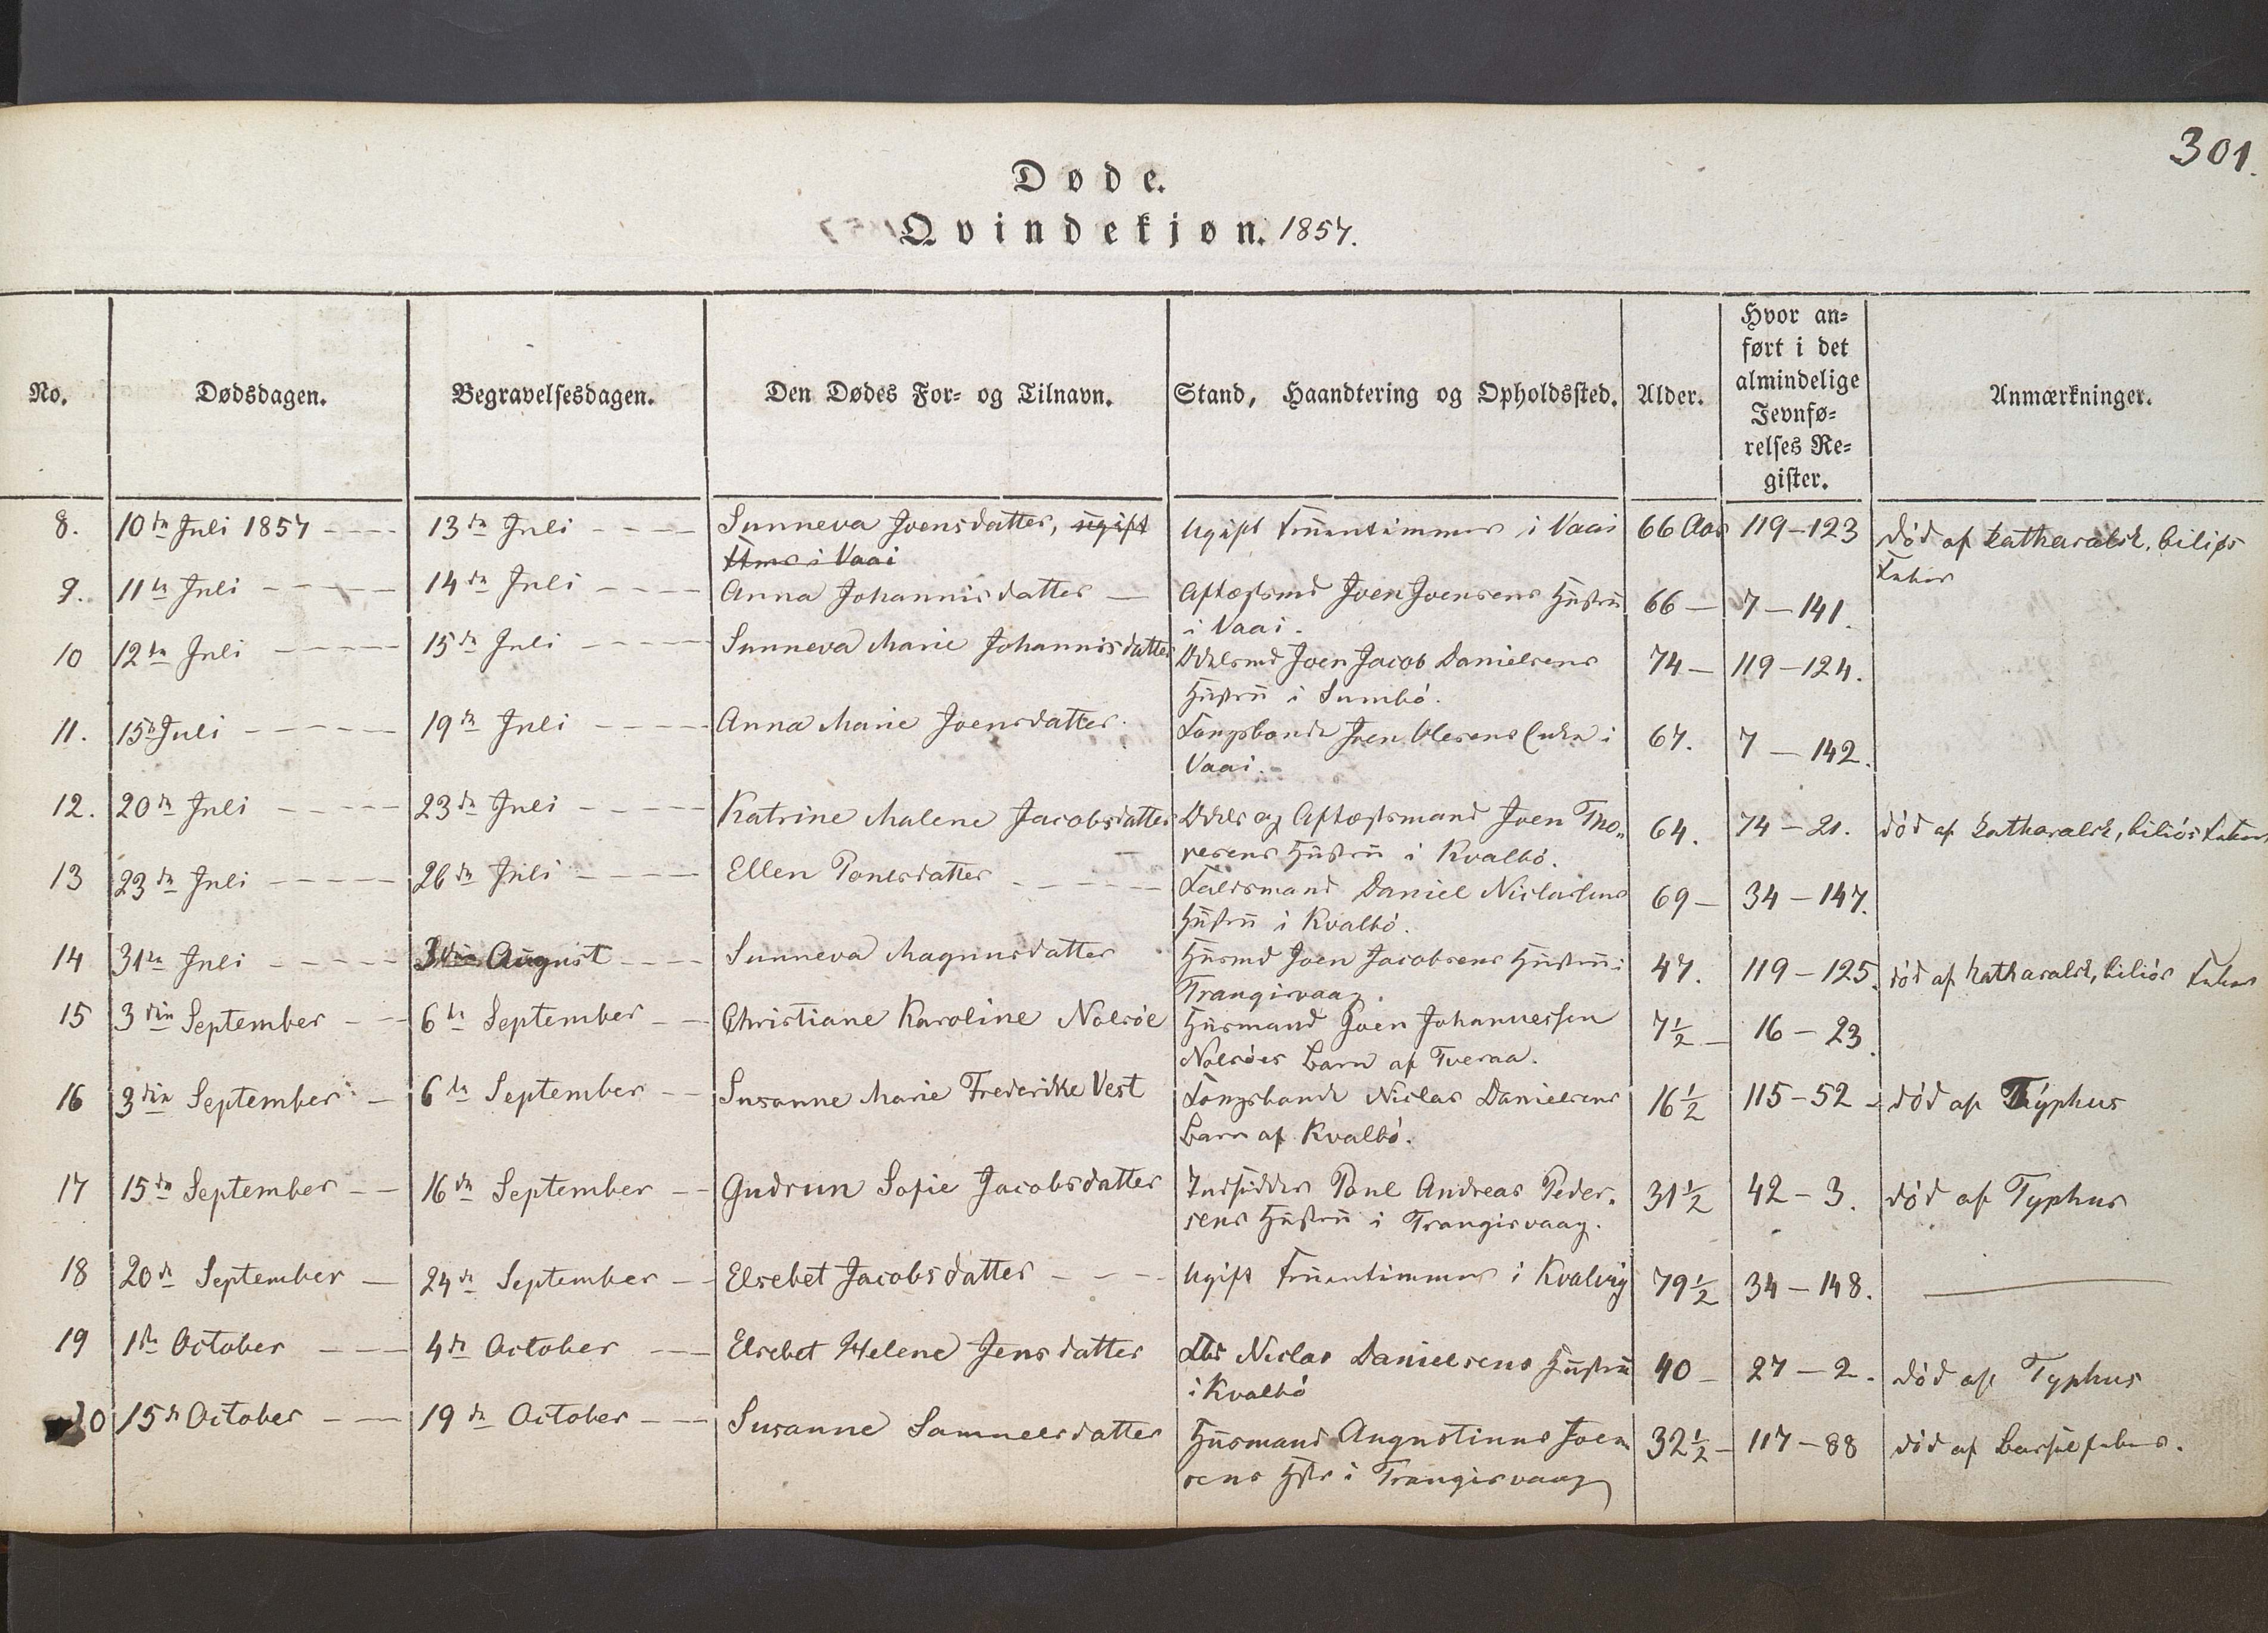 301.
Døde.
Qvindekjøn. 1857.
No. Dødsdagen. Begravelsesdagen. Den Dødes For- og Tilnavn. Stand, Haandtering og Opholdssted. Alder. Hvor an-
ført i det
almindelige
Jevnfø-
relses Re-
gister. Anmærkninger.
8. 10de Juli 1857 13de Juli Sunneva Joensdatter, ugift Ugift Fruentimmer i Vaai 66 Aar 119-123 død af katharalsk, biliøs
i Vaai Feber
9. 11te Juli 14de Juli Anna Johannisdatter Aftægtsmd Joen Joensens Hustru 66 7-141.
i Vaai.
10 12te Juli 15de Juli Sunneva Marie Johannisdatter Odelsmd Joen Jacob Danielsens 74 119-124.
Hustru i Sumbö.
11. 15de Juli 19de Juli Anna Marie Joensdatter Kongsbonde Joen Olesens Enke i 67. 7-142.
Vaai.
12. 20de Juli 23de Juli Katrine Malene Jacobsdatter Odels og Aftægtsmand Joen Tho„ 64. 74-21. død af katharalsk, biliös Feber
resens Hustru i Kvalbö.
13 23de Juli 26de Juli Ellen Poulsdatter Daniel Niclassens 69 34-147.
Hustru i Kvalbö.
14 31te Juli 3die August Sunneva Magnusdatter Husmd Joen Jacobsens Hustru i 47. 119-125. død af katharalsk, biliös Feber
Trangisvaag.
15 3die September 6te September Christiane Karoline Nolsöe Husmand Joen Johannessen 7½ 16-23.
Nolsöes Barn af Tveraa.
16 3die September 6te September Susanne Marie Frederikke Vest Kongsbonde Niclas Danielsens 16½ 115-52 død af Typhus
Barn af Kvalbö.
17 15de September 16de September Gudrun Sofie Jacobsdatter Indsidder Poul Andreas Peder„ 31½ 42-3. død af Typhus
sens Hustru i Trangisvaag.
18 20de September 24de September Elsebet Jacobsdatter Ugift Fruentimmer i Kvalvig 79½ 34-148.
19 1ste October 4de October Elsebet Helene Jensdatter Niclas Danielsens Hustru 40 27-2. død af Typhus
i Kvalbö
20 15de October 19de October Susanne Samuelsdatter Husmand Augustinus Joen 32½ 117-88 død af Barselfeber.
sens Hstr i Trangisvaag